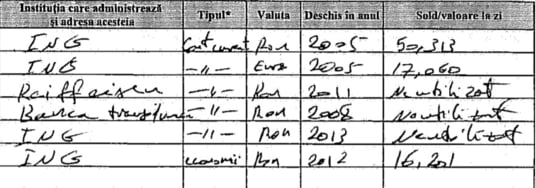 Instituția care administrează și adresa acesteia | Tipul* | Valuta | Deschis în anul | Sold/valoare la zi
ING | Cont curent | Ron | 2005 | 50,313
ING | -//- | Euro | 2005 | 17,060
Raiffaisen | -//- | Ron | 2011 | Neutilizat
Banca | -//- | Ron | 2008 | Neutilizat
ING | -//- | Ron | 2013 | Neutilizat
ING | economii | Ron | 2012 | 16,201